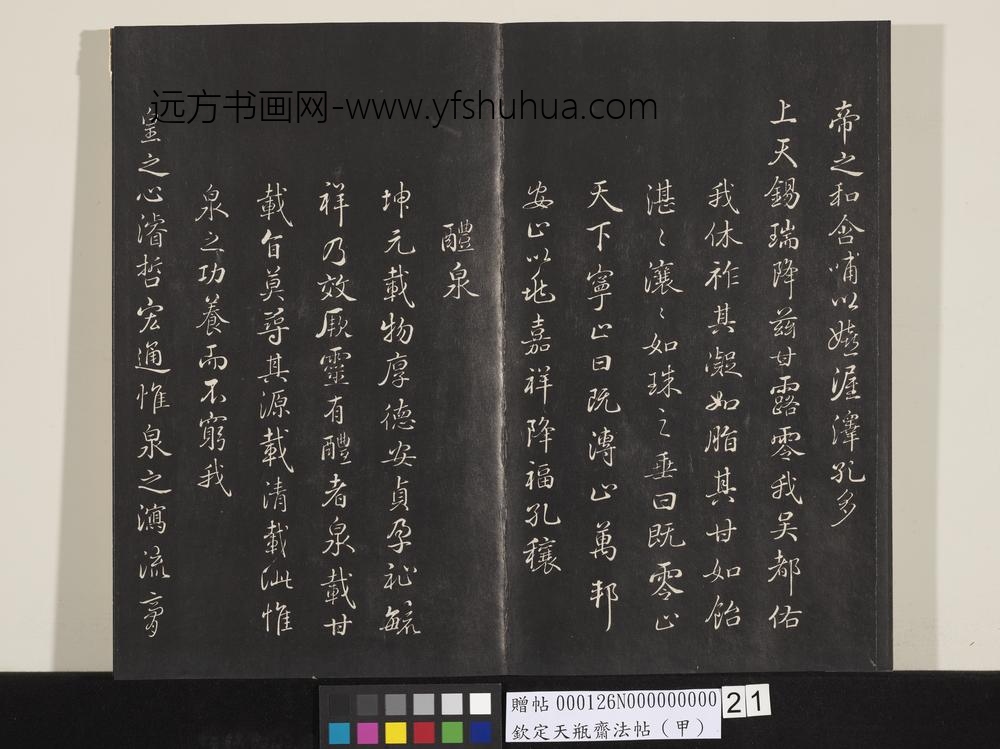 远方书画网-www.yfshuhua.com
帝之和含哺以嬉渥澤孔多
上天錫瑞降茲甘露零我吴都佑
我休祚其凝如脂其甘如飴
湛〻瀼〻如珠之垂曰既零止
天下寧止曰既漙止萬邦
安止以兆嘉祥降福孔穰
醴泉
坤元載物厚德安貞孕祉毓
祥乃效厥靈有醴者泉載甘
載旨莫尋其源載清載泚惟
泉之功養而不窮我
皇之心濬哲宏通惟泉之瀉流膏
贈帖 000126N000000000
欽定天瓶齋法帖（甲）
21